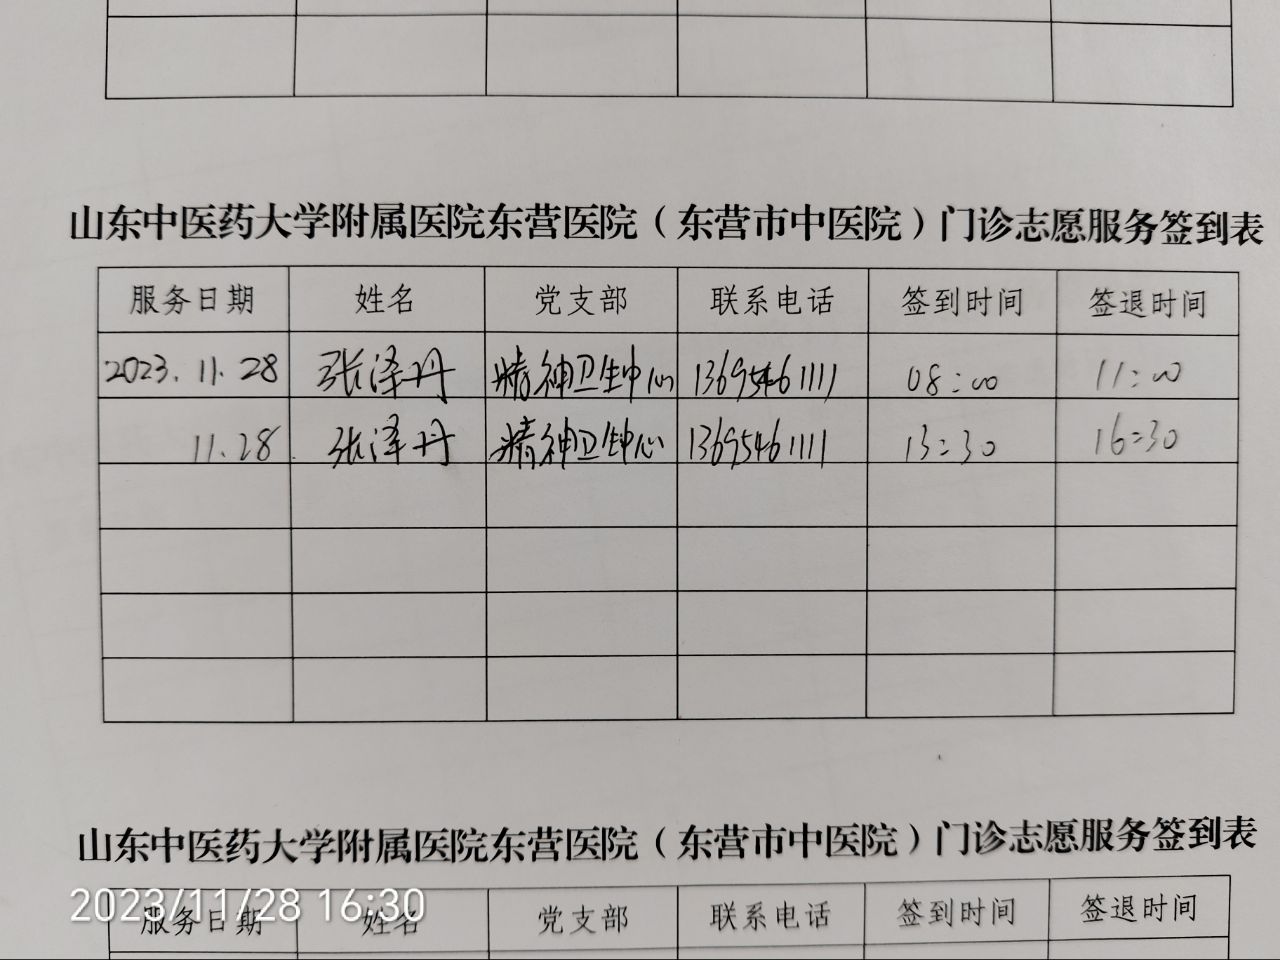 山东中医药大学附属医院东营医院（东营市中医院）门诊志愿服务签到表
服务日期 姓名 党支部 联系电话 签到时间 签退时间
2023.11.28 张泽丹 精神卫生中心 13695461111 08:00 11:00
11.28 张泽丹 精神卫生中心 13695461111 13:30 16:30
山东中医药大学附属医院东营医院（东营市中医院）门诊志愿服务签到表
2023/11/28 16:30
服务日期 姓名 党支部 联系电话 签到时间 签退时间